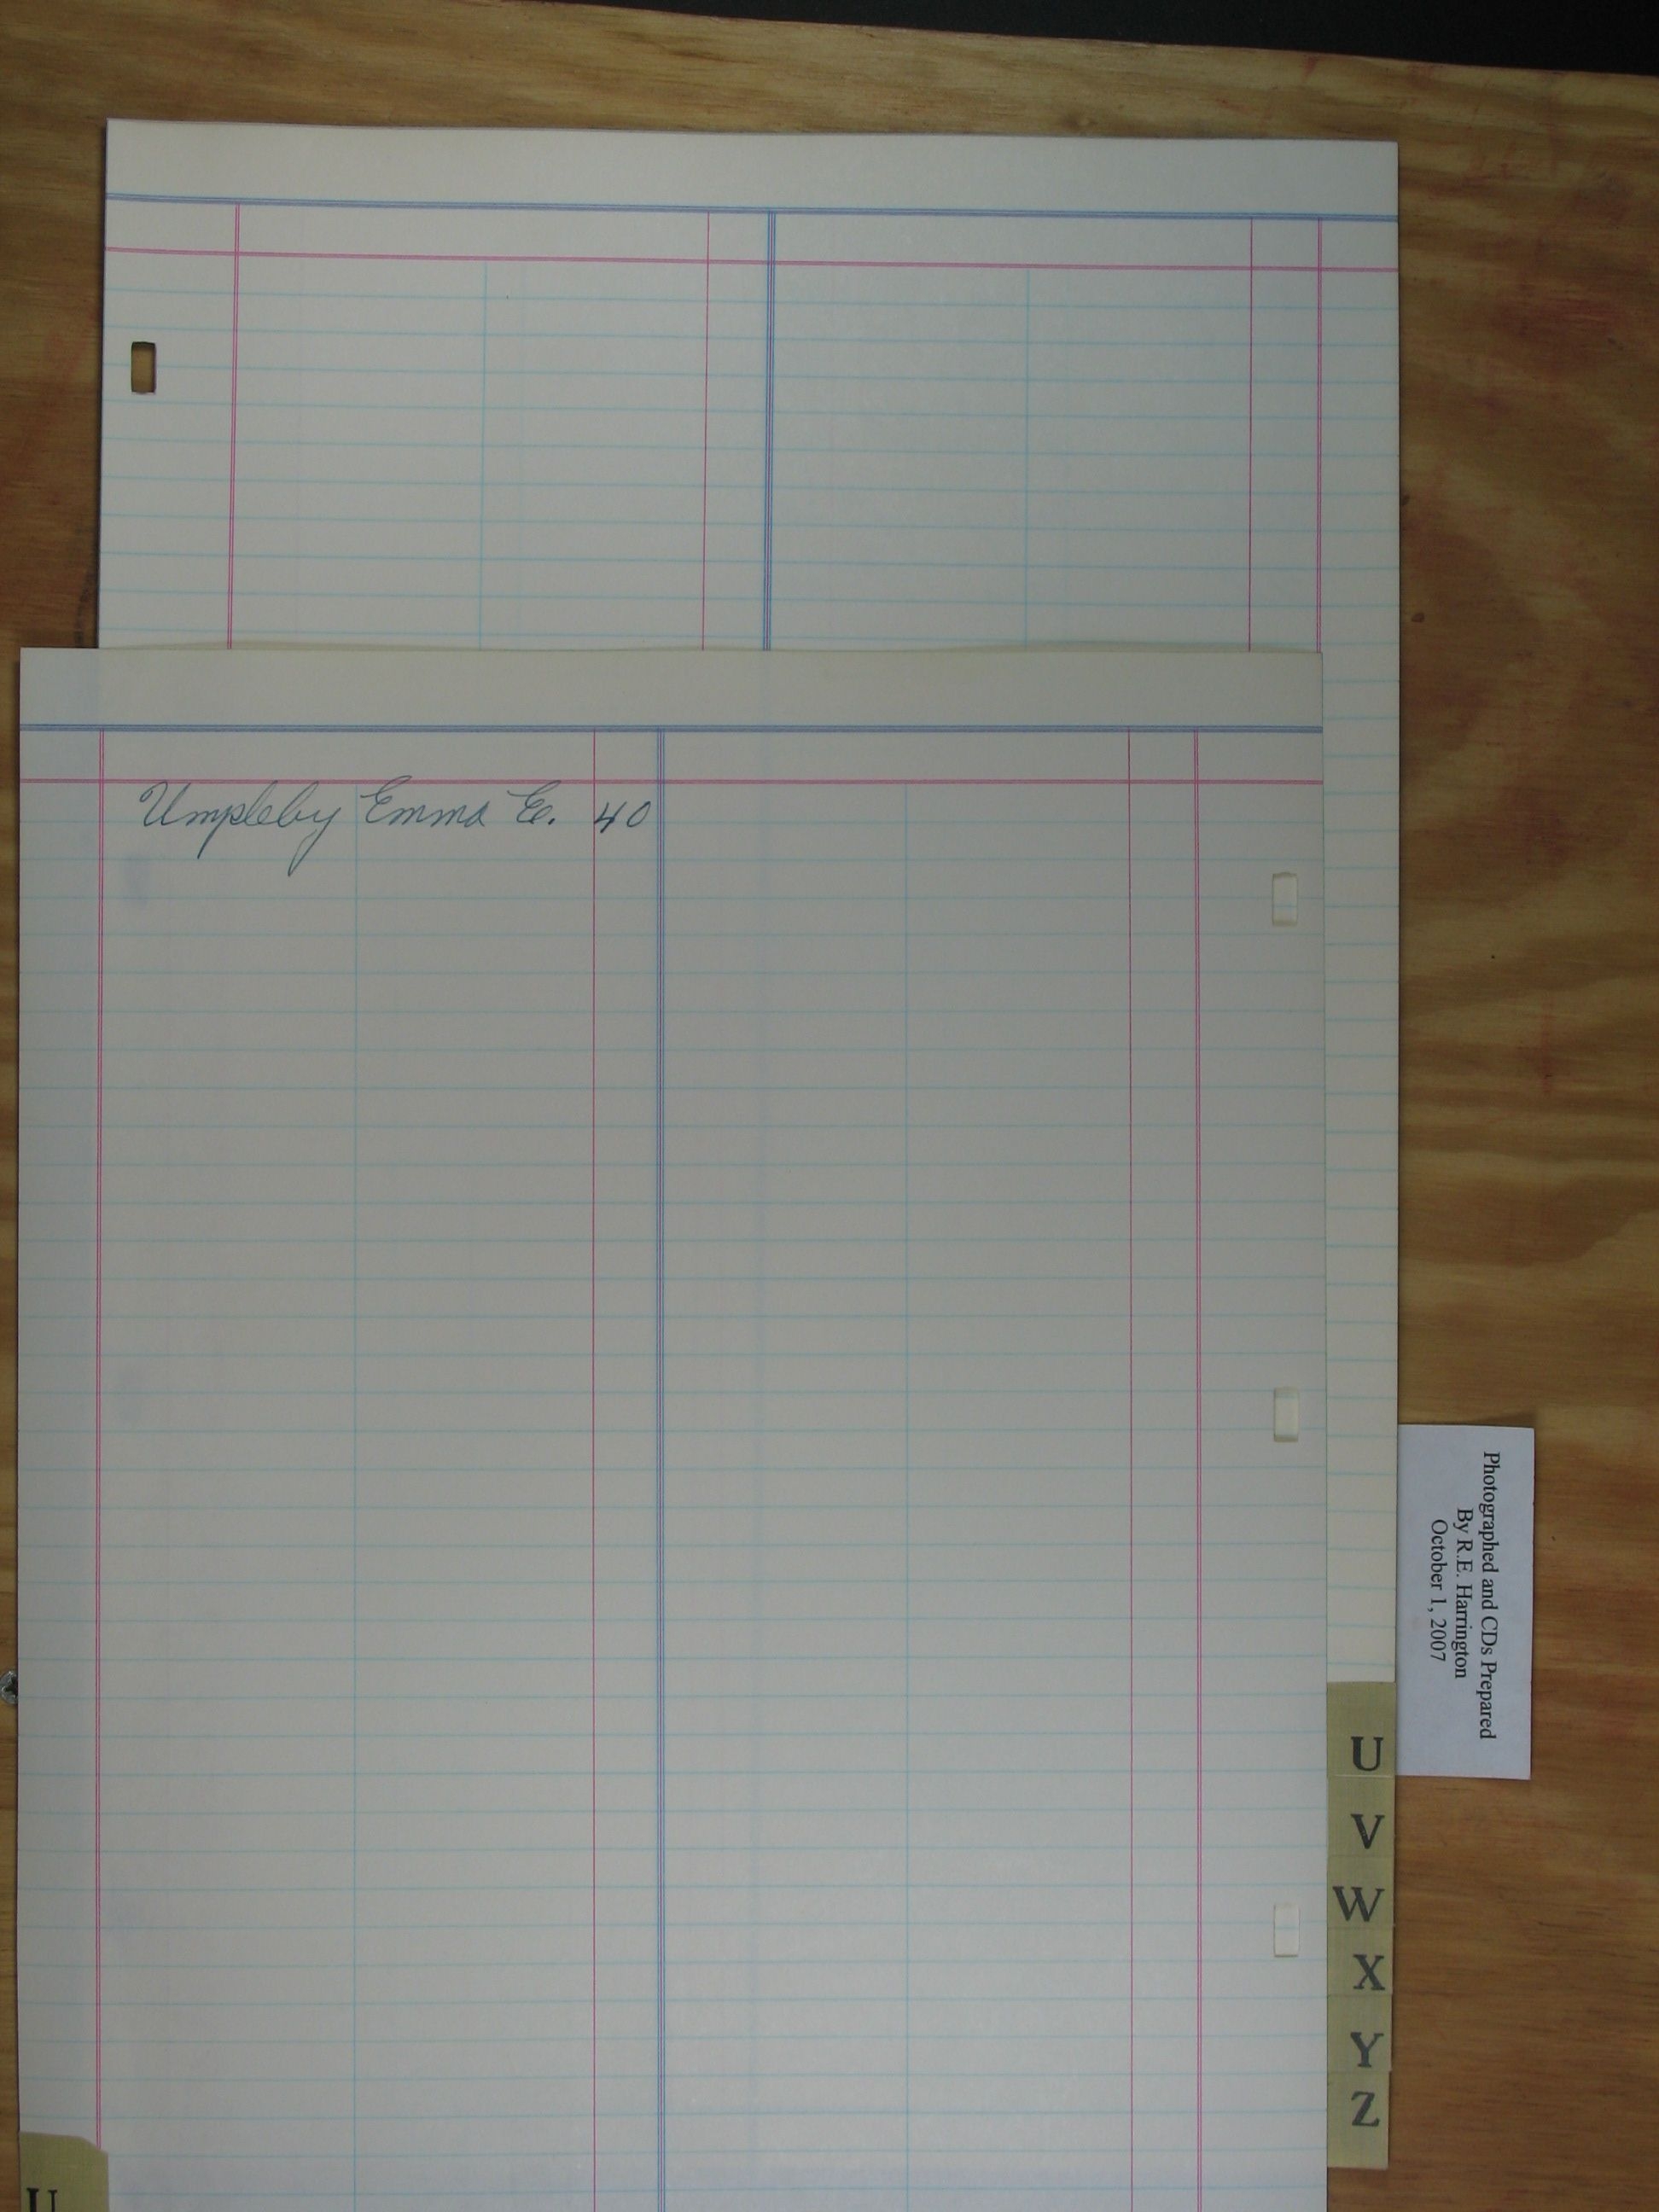 Umpleby Emma E. 40
Photographed and CDs Prepared
By R.E. Harrington
October 1, 2007
U
V
W
X
Y
Z
U